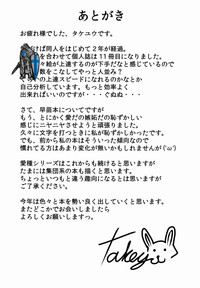 あとがき
お疲れ様でした、タケユウです。
けば同人をはじめて2年が経過。
を合わせて個人誌は11冊目になりました。
々絵が上達するのが下手だなと感じているので
数をこなしてやっと人並み？
の上達スピードになれるのかなとか
自己分析しています。もっと効率よく
出来ればいいのですが・・・ぐぬぬ・・・
さて、早苗本についてですが
今回、とにかく愛だの嫉妬だの恥ずかしい
感じにニヤニヤさせようと頑張りました。
久々に文字を打つときに私が恥ずかしかったです。
でも、前から私の本はそういった傾向なので
慣れてる方はあまり変化が無いかもしれませんが（'ω'）
愛種シリーズはこれからも続けると思いますが
たまには集団系の本も描くと思います。
ちょっといつもと違う趣向になるとは思いますが
ご了承ください。
今年は色々と本を勢い良く出していくと思います。
またどこかでお会いしましたら
よろしくお願いします。
takeyu